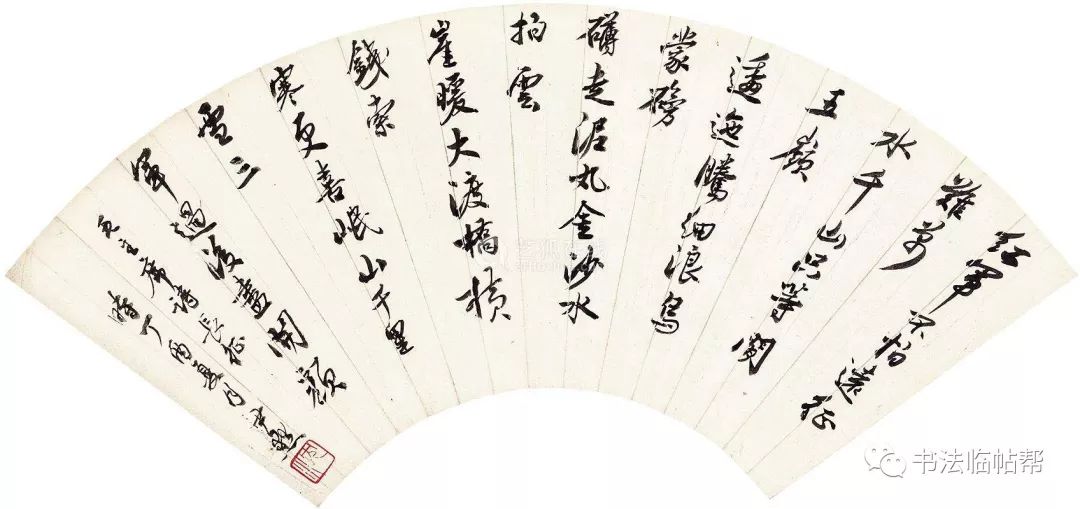 紅軍不怕遠征
難萬
水千山只等閑
五嶺
逶迤騰細浪烏
蒙磅
礴走泥丸金沙水
拍雲
崖暖大渡橋横
鐵索
寒更喜岷山千里
雪三
軍過後盡開顏
主席詩長征
時丁酉夏月
书法临帖帮